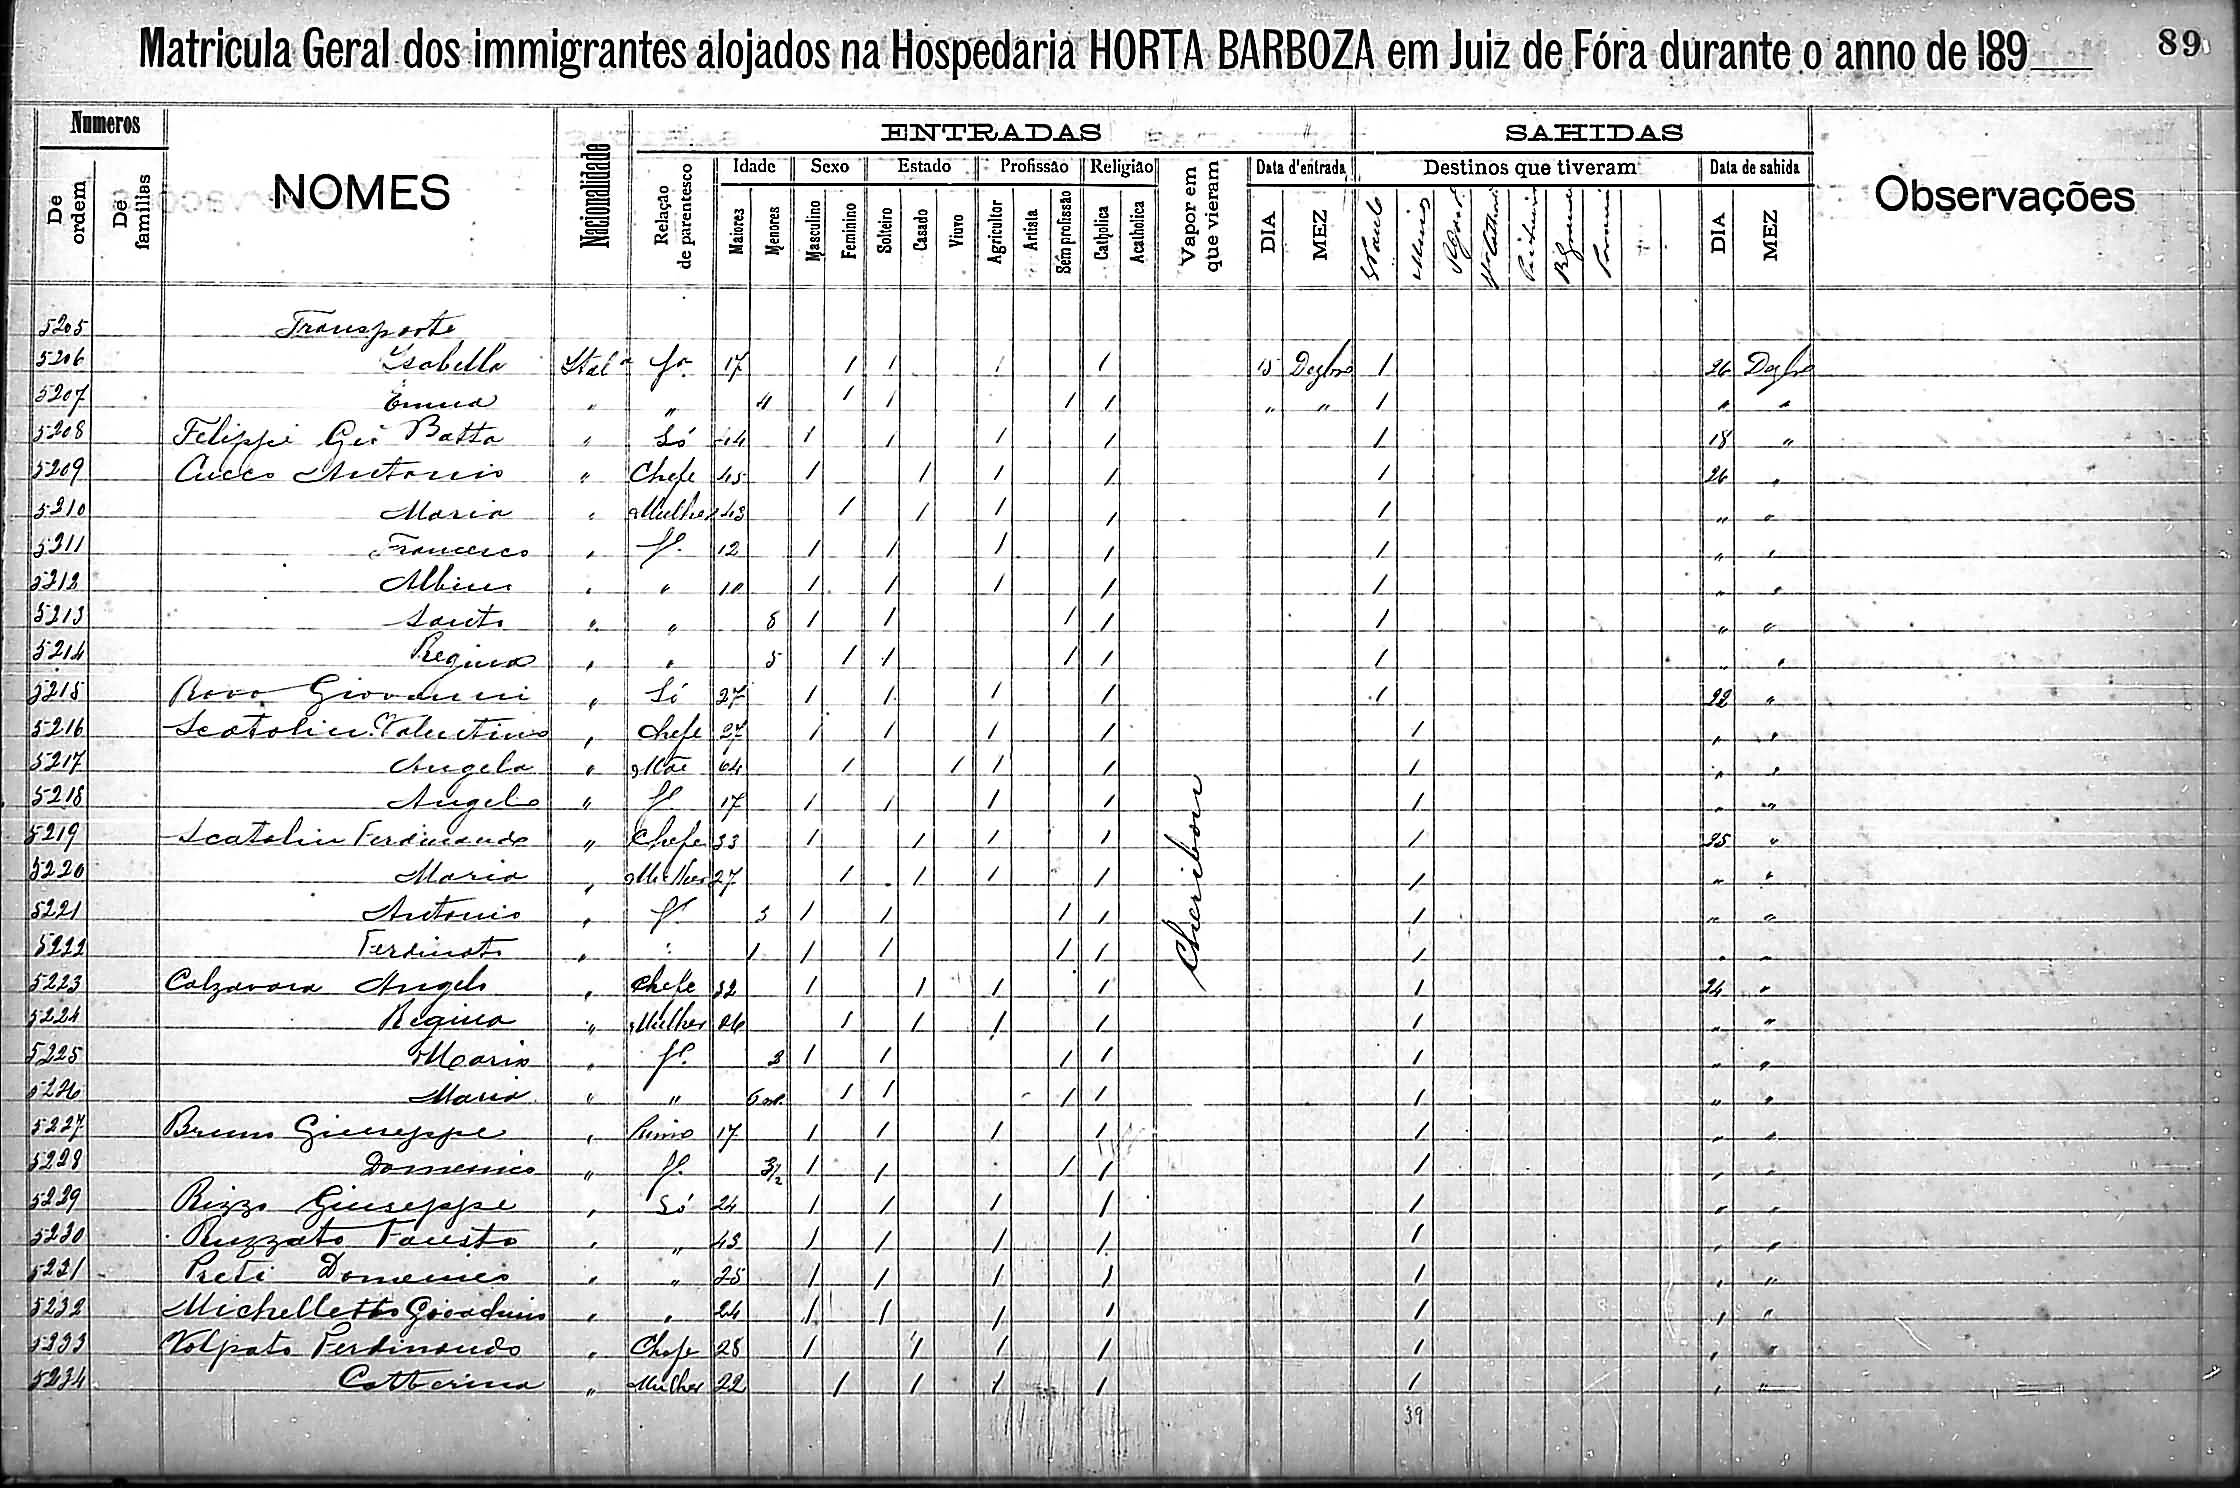 Matricula Geral dos immigrantes alojados na Hospedaria HORTA BARBOZA em Juiz de Fóra durante o anno de 189 89
Numeros ENTRADAS SAHIDAS
De ordem De familias NOMES Nacionalidade Relação de parentesco Idade Sexo Estado Profissão Religião Vapor em que vieram Data d'entrada Destinos que tiveram Data de sahida Observações
Maiores Menores Masculino Feminino Solteiro Casado Viuvo Agricultor Artista Sem profissão Catholica Acatholica DIA MEZ S Paulo Minas DIA MEZ
5205 Transporte
5206 Isabella Itala fa 17 1 1 1 1 15 Dezbro 1 26 Dezbro
5207 Emma " " 4 1 1 1 1 " " 1 " "
5208 Filippi Gio Batta " Só 44 1 1 1 1 1 18 "
5209 Cucco Antonio " Chefe 45 1 1 1 1 1 26 "
5210 Maria " Mulher 43 1 1 1 1 1 " "
5211 Francesco " fo 12 1 1 1 1 1 " "
5212 Albino " " 10 1 1 1 1 1 " "
5213 Santo " " 8 1 1 1 1 1 " "
5214 Regina " " 5 1 1 1 1 1 " "
5215 Giovanni " Só 27 1 1 1 1 1 22 "
5216 Scatolin Valentino " Chefe 27 1 1 1 1 1 " "
5217 Angela " Mãe 64 1 1 1 1 1 " "
5218 Angelo " fo 17 1 1 1 1 1 " "
5219 Scatolin Ferdinando " Chefe 33 1 1 1 1 1 "
5220 Maria " Mulher 27 1 1 1 1 1 " "
5221 Antonio " fo 3 1 1 1 1 1 " "
5222 " " 1 1 1 1 1 1 " "
Cheribon
5223 Calzavara Angelo " Chefe 32 1 1 1 1 1 24 "
5224 Regina " Mulher 26 1 1 1 1 1 " "
5225 " fo 3 1 1 1 1 1 " "
5226 Maria " " 6 m. 1 1 1 1 1 " "
5227 Bruno Giuseppe " Primo 17 1 1 1 1 1 " "
5228 Domenico " fo 3/2 1 1 1 1 1 " "
5229 Rizzo Giuseppe " Só 24 1 1 1 1 1 " "
5230 Ruzzato Fausto " " 43 1 1 1 1 1 " "
5231 Preti Domenico " " 25 1 1 1 1 1 " "
5232 Michelletto " " 24 1 1 1 1 1 " "
5233 Volpato Ferdinando " Chefe 28 1 1 1 1 1 " "
5234 Catterina " Mulher 22 1 1 1 1 1 " "
39